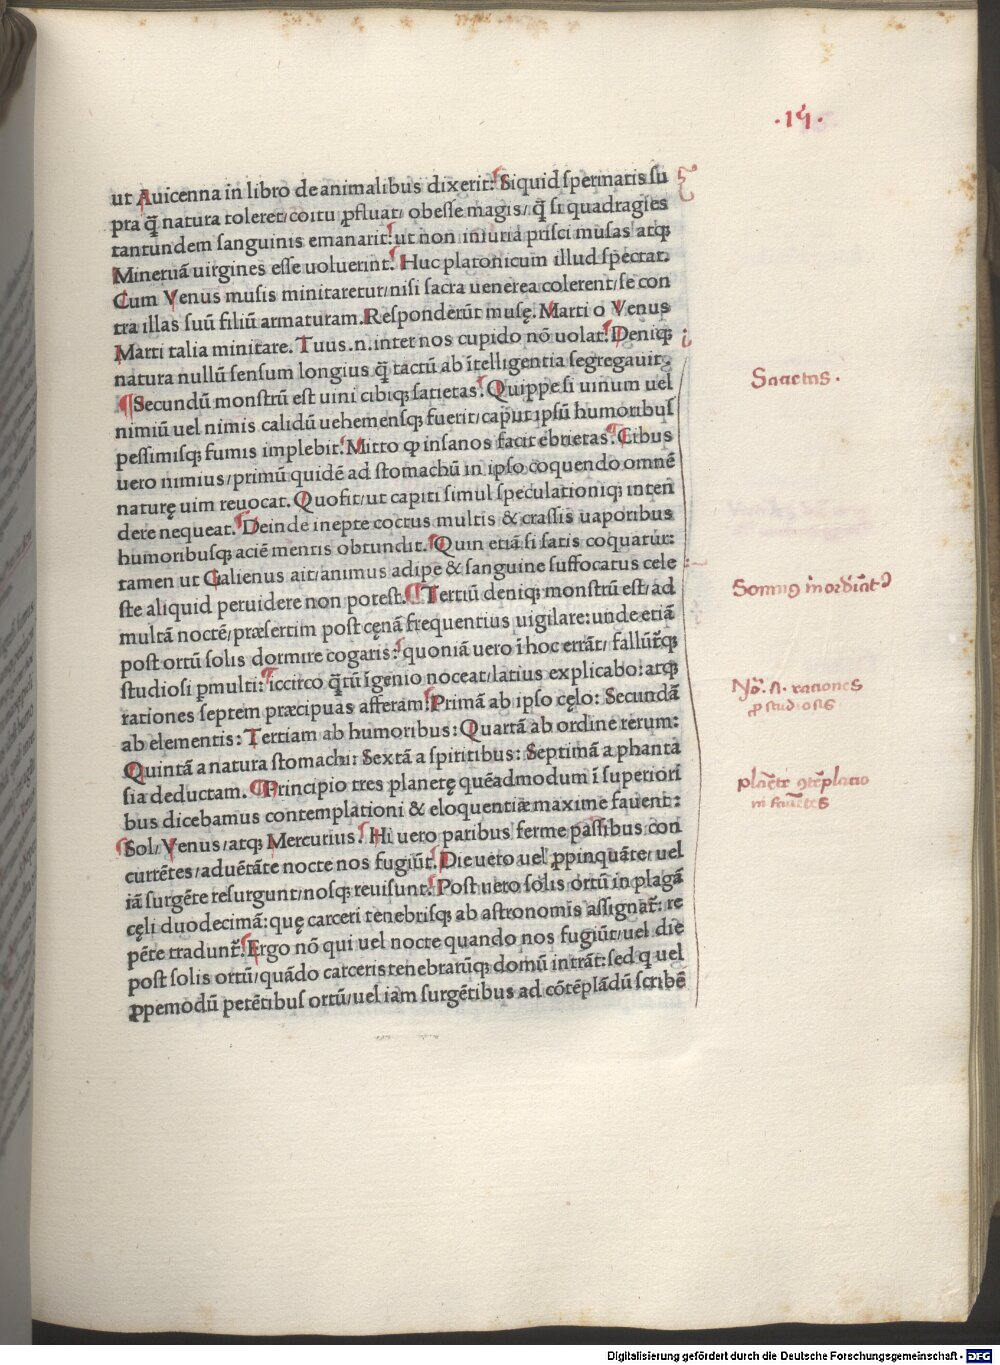 .15.
ut Auicenna in libro de animalibus dixerit: Siquid spermatis su
pra q̃ natura toleret/coitu ꝓfluat/ obesse magis/ q̃ si quadragies
tantundem sanguinis emanarit: ut non iniuria prisci musas atqꝫ
Mineruã uirgines esse uoluerint. Huc platonicum illud spectat.
Cum Venus musis minitaretur/nisi sacra uenerea colerent/se con
tra illas suũ filiũ armaturam. Responderũt musę. Marti o Venus
Marti talia minitare. Tuus .n. inter nos cupido nõ uolat. Deniqꝫ
natura nullũ sensum longius q̃ tactũ ab ĩtelligentia segregauit.
Secundũ monstrũ est uini cibiqꝫ satietas. Quippe si uinum uel
nimiũ uel nimis calidũ uehemensqꝫ fuerit/caput ipsũ humoribus
pessimisqꝫ fumis implebit. Mitto ꝙ insanos facit ebrietas. Cibus
uero nimius/primũ quidẽ ad stomachũ in ipso coquendo omnẽ
naturę uim reuocat. Quo fit/ut capiti simul speculationiqꝫ inten
dere nequeat. Deinde inepte coctus multis & crassis uaporibus
humoribusqꝫ aciẽ mentis obtundit. Quin etiã si satis coquatur:
tamen ut Galienus ait/animus adipe & sanguine suffocatus cele
ste aliquid peruidere non potest. Tertiũ deniqꝫ monstrũ est/ad
multã noctẽ/præsertim post cęnã frequentius uigilare: unde etiã
post ortũ solis dormire cogaris: quoniã uero ĩ hoc errãt/ fallũt̃qꝫ
studiosi ꝑmulti: iccirco q̃tũ ĩgenio noceat/latius explicabo: atqꝫ
rationes septem præcipuas afferam. Primã ab ipso cęlo: Secundã
ab elementis: Tertiam ab humoribus: Quartã ab ordine rerum:
Quintã a natura stomachi: Sextã a spiritibus: Septimã a phanta
sia deductam. Principio tres planetę quẽadmodum ĩ superiori
bus dicebamus contemplationi & eloquentiæ maxime fauent:
Sol/Venus/atqꝫ Mercurius. Hi uero paribus ferme passibus con
currẽtes/aduẽtãte nocte nos fugiũt. Die uero uel ꝓpinquãte/ uel
iã surgẽte resurgunt/nosqꝫ reuisunt. Post uero solis ortũ in plagã
cęli duodecimã: quę carceri tenebrisqꝫ ab astronomis assignat̃: re
pẽte tradunt̃. Ergo nõ qui uel nocte quando nos fugiũt/uel die
post solis ortũ/quãdo carceris tenebrarũqꝫ domũ intrãt: sed q uel
ꝓpemodũ petẽtibus ortũ/uel iam surgẽtibus ad cõtẽplãdũ scribẽ
Sacietas.
Somnꝯ inordinãt
Nõ. 7. rationes
ꝓ studiosis
planẽte ꝯtẽplatio
ni fauẽtes
Digitalisierung gefördert durch die Deutsche Forschungsgemeinschaft - DFG